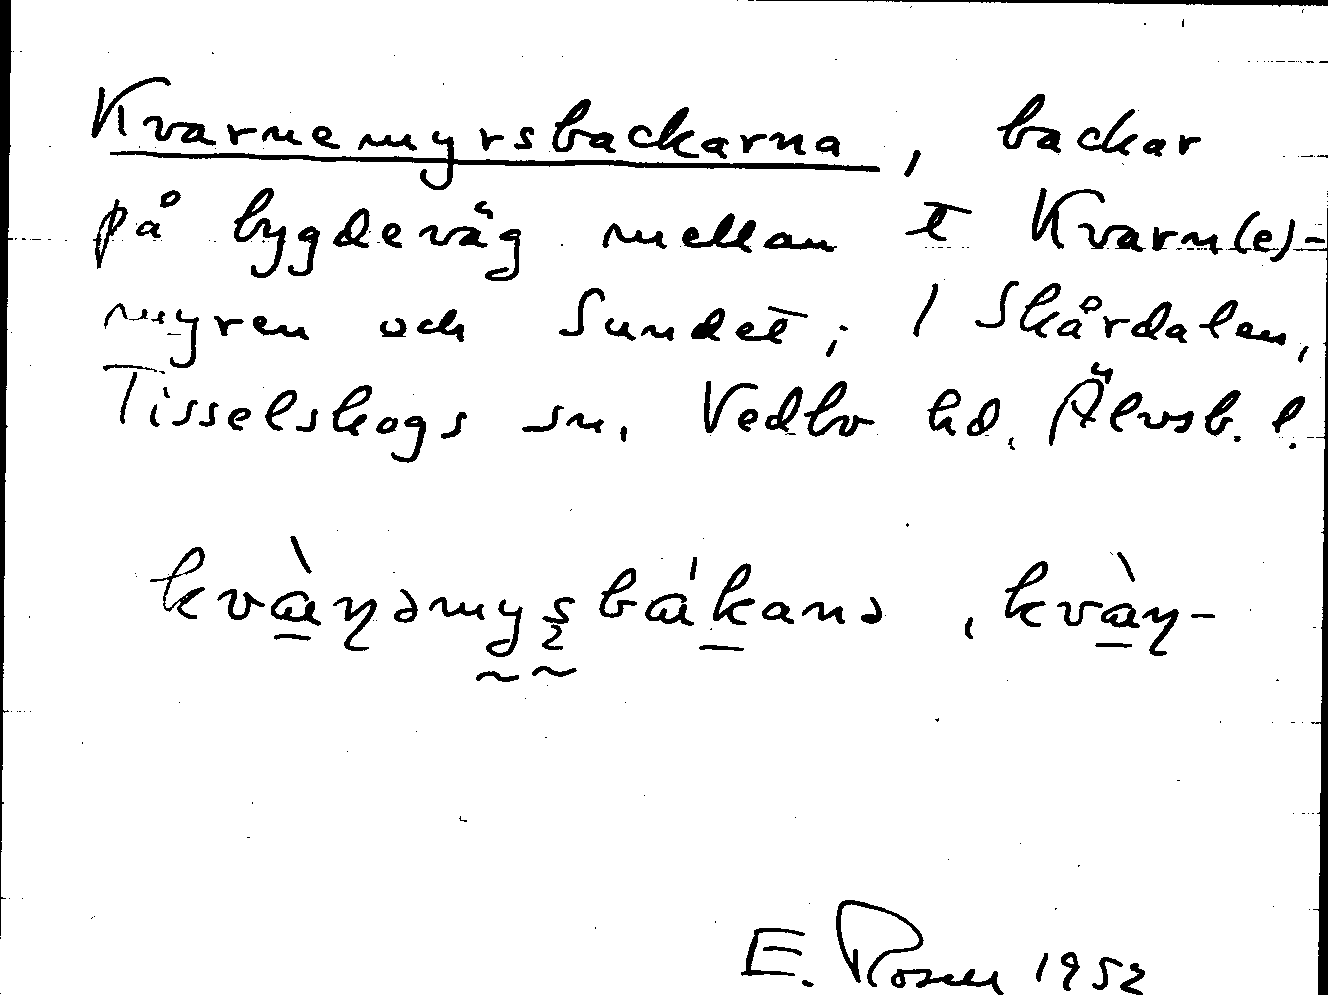 Kvarnemyrsbackarna, backar
på bygdeväg mellan t Kvarn(e)-
myren och Sundet; 1 Skårdalen,
Tisselskogs sn, Vedbo hd. Älvsb. l.
kvàṇəmyșbákanə, kvàṇ-
E. Rosell 1952